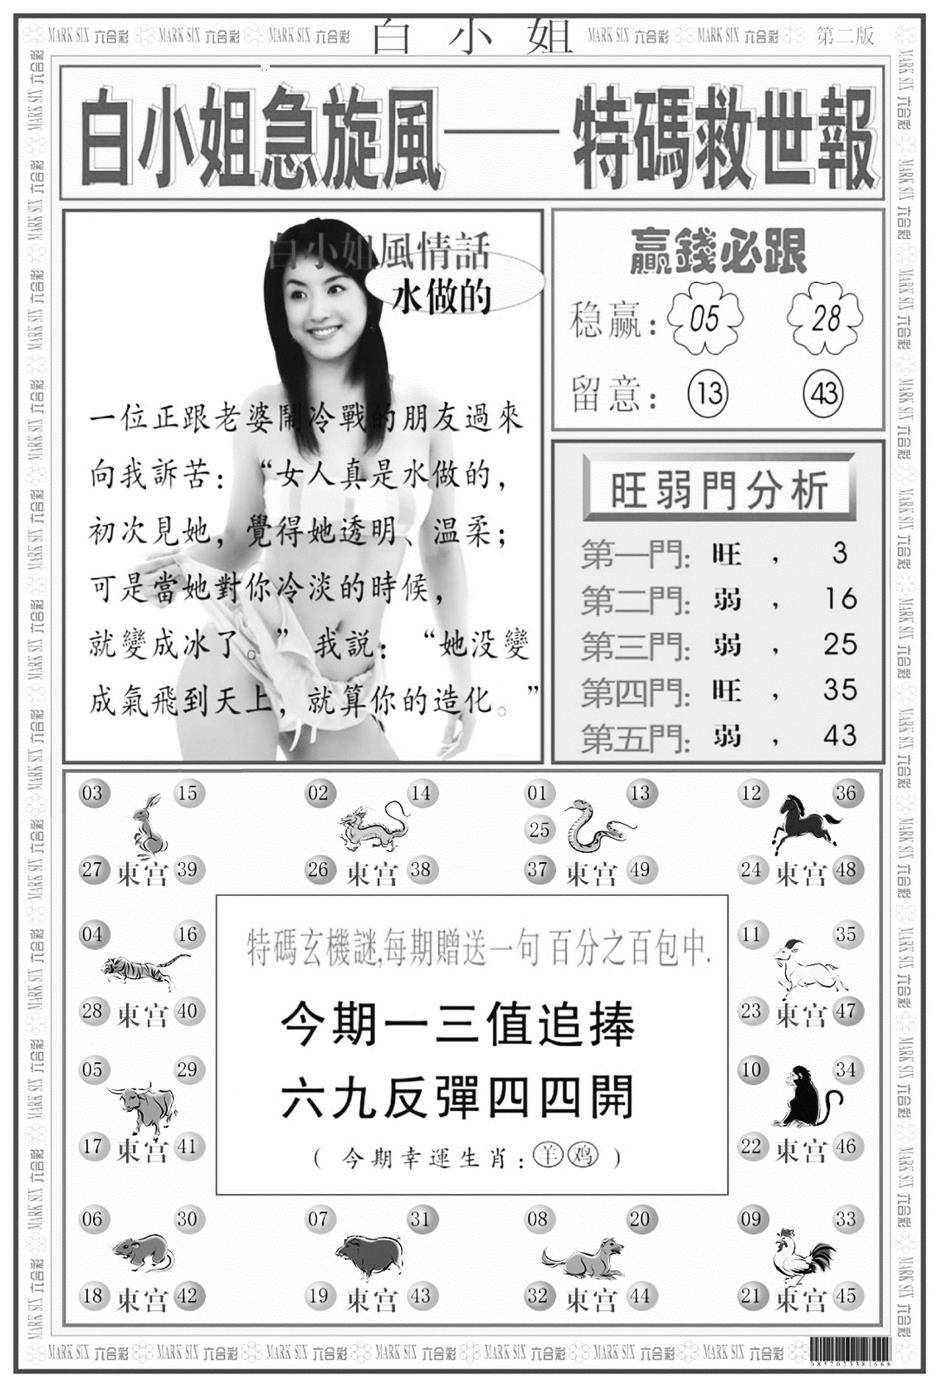 MARK SIX 六合彩 MARK SIX 六合彩 MARK SIX 六合彩 白小姐 MARK SIX 六合彩 MARK SIX 六合彩 第二版
白小姐急旋風——特碼救世報
白小姐風情話
水做的
一位正跟老婆鬧冷戰的朋友過來
向我訴苦：“女人真是水做的，
初次見她，覺得她透明、温柔；
可是當她對你冷淡的時候，
就變成冰了。” 我説：“她没變
成氣飛到天上，就算你的造化。”
贏錢必跟
稳赢： 05 28
留意： 13 43
旺弱門分析
第一門: 旺 ， 3
第二門: 弱 ， 16
第三門: 弱 ， 25
第四門: 旺 ， 35
第五門: 弱 ， 43
03 15 02 14 01 13 12 36
25
27 東宫 39 26 東宫 38 37 東宫 49 24 東宫 48
特碼玄機謎,每期贈送一句 百分之百包中.
今期一三值追捧
六九反彈四四開
（今期幸運生肖：羊 鸡）
04 16
28 東宫 40
05 29
17 東宫 41
11 35
23 東宫 47
10 34
22 東宫 46
06 30 07 31 08 20 09 33
18 東宫 42 19 東宫 43 32 東宫 44 21 東宫 45
MARK SIX 六合彩 MARK SIX 六合彩 MARK SIX 六合彩 MARK SIX 六合彩 MARK SIX 六合彩 MARK SIX 六合彩 MARK SIX 六合彩